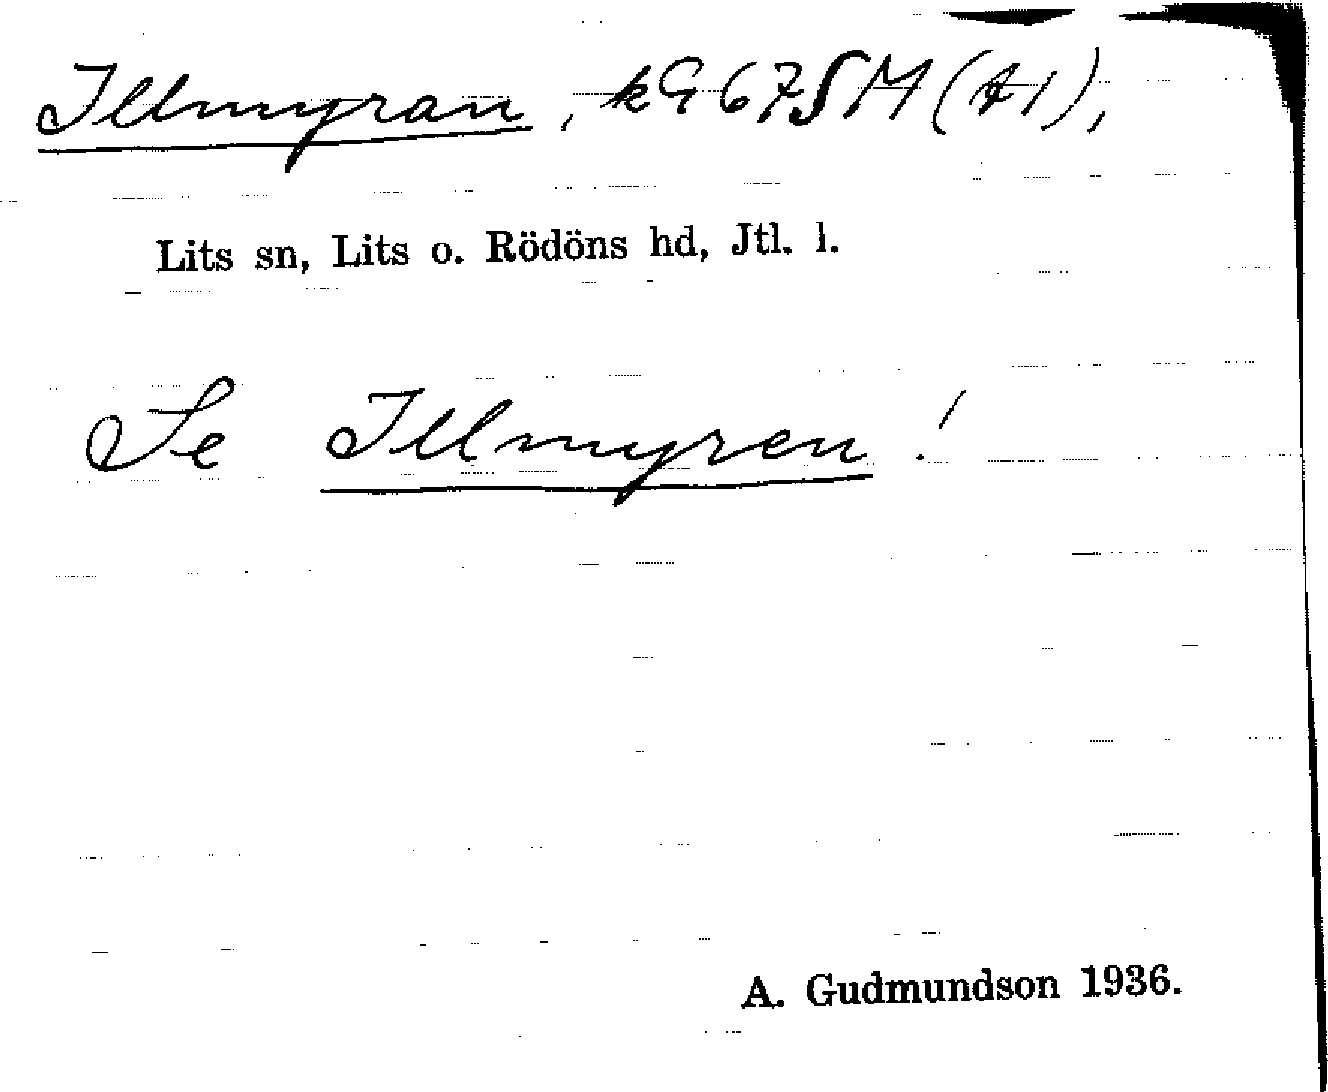 Illmyran, kG 67 SM (A1),
Lits sn, Lits o. Rödöns hd, Jtl. l.
Se Illmyren!
A. Gudmundson 1936.